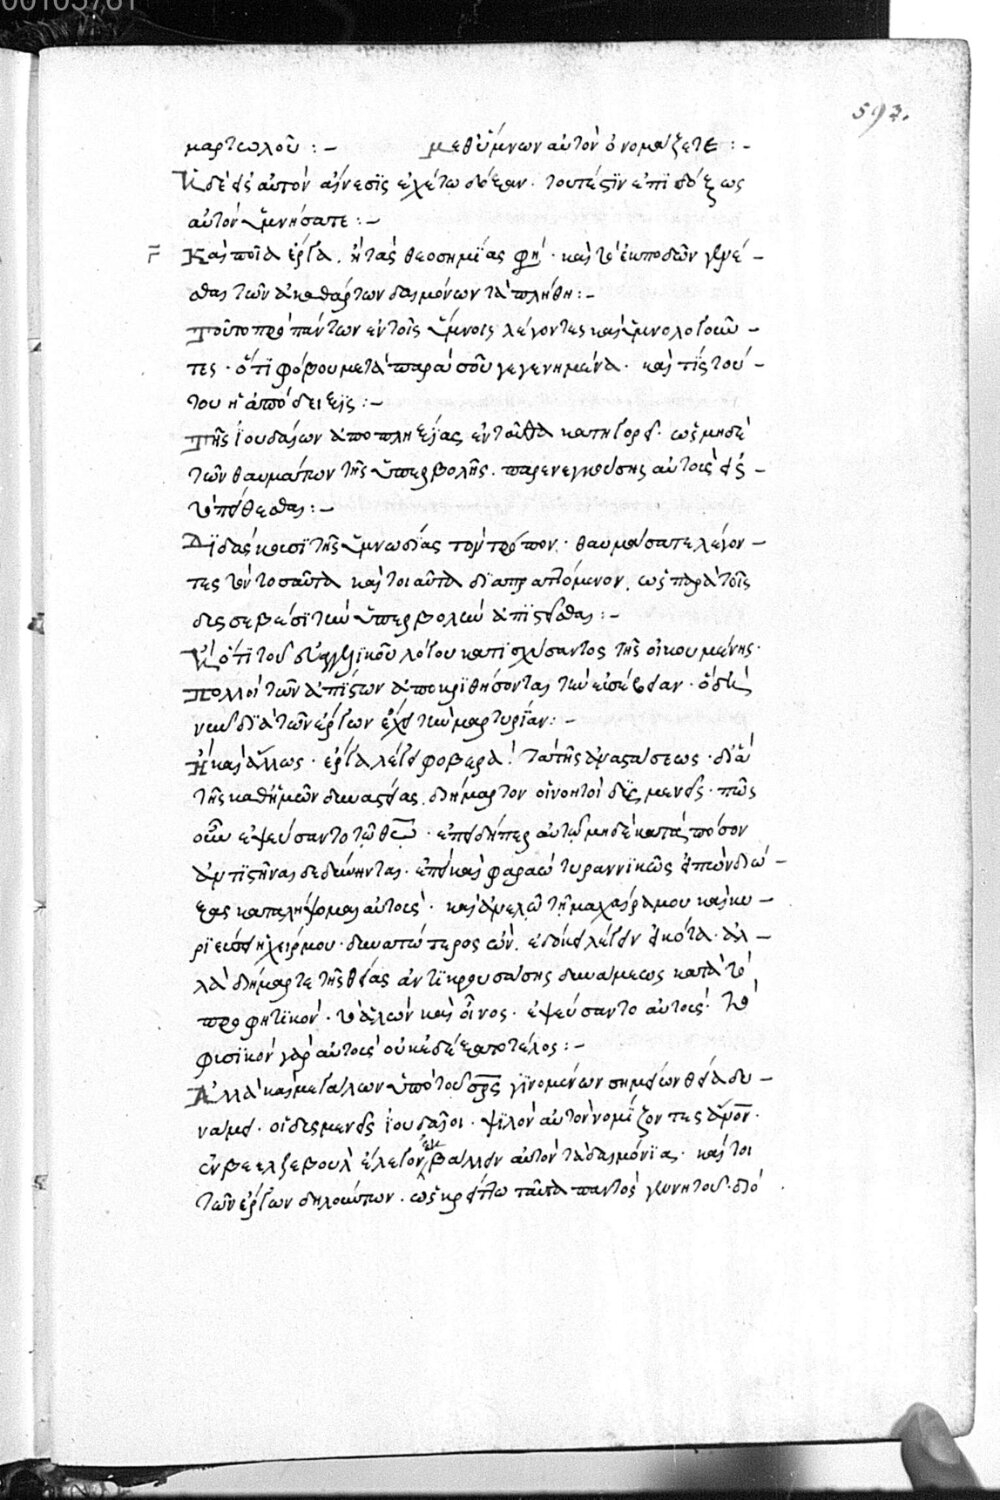 00103761
593.
μαρτωλοῦ :– μεθ' ὕμνων αὐτὸν ὀνομάζετε :–
αὐτὸν αἴνεσις ἐχέτω δόξαν · τουτέστιν ἐπὶ δόξης ὡς
αὐτὸν ὑμνήσατε :–
γ Καὶ ποῖα ἔργα · ἢ τὰς θεοσημίας φησί · καὶ τὸ ἐκποδῶν γενέ –
σθαι τῶν ἀκαθάρτων δαιμόνων τὰ πλήθη :–
Τοῦτο πρὸ πάντων ἐν τοῖς ὕμνοις λέγοντες καὶ ὑμνολογοῦν –
τες · ὅτι φόβου μετὰ παρὰ σοῦ γεγενημένα · καὶ τίς τού –
του ἡ ἀπόδειξις :–
Τῆς Ἰουδαίων ἀποπληξίας ἐνταῦθα κατηγορεῖ · ὡς μηδὲ
τῶν θαυμάτων τῆς ὑπερβολῆς · παρενεγκούσης αὐτοὺς εἰς –
τὸ πείθεσθαι :–
Διδάσκουσι τῆς ὑμνωδίας τὸν τρόπον · θαυμάσατε λέγον –
τες τὸν τοσαῦτα καὶ τοιαῦτα διαπραττόμενον · ὡς παρὰ τοῖς
δυσσεβέσι τὴν ὑπερβολὴν ἀπιστεῖσθαι :–
ὅτι τοῦ εὐαγγελικοῦ λόγου κατισχύσαντος τῆς οἰκουμένης ·
Πολλοὶ τῶν ἀπίστων ἀποκριθήσονται τὴν εὐσέβειαν ·
διὰ τῶν ἔργων ἔχει τὴν μαρτυρίαν :–
Ἢ καὶ ἄλλως · ἔργα λέγει φοβερὰ · τὰ τῆς ἀναστάσεως · διὰ
τῆς καθ' ἡμῶν δυναστείας διήμαρτον οἱ νοητοὶ δυσμενεῖς · πῶς
οὖν ἐψεύσαντο τῷ θεῷ · ἐπειδήπερ αὐτῷ μηδὲ κατὰ πόσον
ἀντιστῆναι δεδύνηνται · ἐπεὶ καὶ φαραὼ τυραννικῶς εἰπὼν διώ –
ξας καταλήψομαι αὐτοὺς · καὶ ἀνελῶ τῇ μαχαίρᾳ μου καὶ κυ –
ριεύσει ἡ χείρ μου · δυνατώτερος ὢν · ἐδόκει λέγειν εἰκότα · ἀλ –
λὰ διήμαρτε τῆς θείας ἀντικρουσάσης δυνάμεως κατὰ τὸ
προφητικόν · καὶ οἶνος · ἐψεύσαντο αὐτοὺς · τὸ
φυσικὸν γὰρ αὐτοὺς οὐκ ἐδέξατο τέλος :–
Ἀλλὰ καὶ μεγάλων ὑπὸ τοῦ σρς γινομένων σημείων θείᾳ δυ –
νάμει · οἱ δυσμενεῖς ἰουδαῖοι · ψιλὸν αὐτὸν νομίζοντες ἄνον ·
ἐν βεελζεβοὺλ ἔλεγον ἐκβάλλειν αὐτὸν τὰ δαιμόνια · καίτοι
τῶν ἔργων δηλούντων · ὡς κρείττω ταῦτα παντὸς γεννητοῦ · διὸ